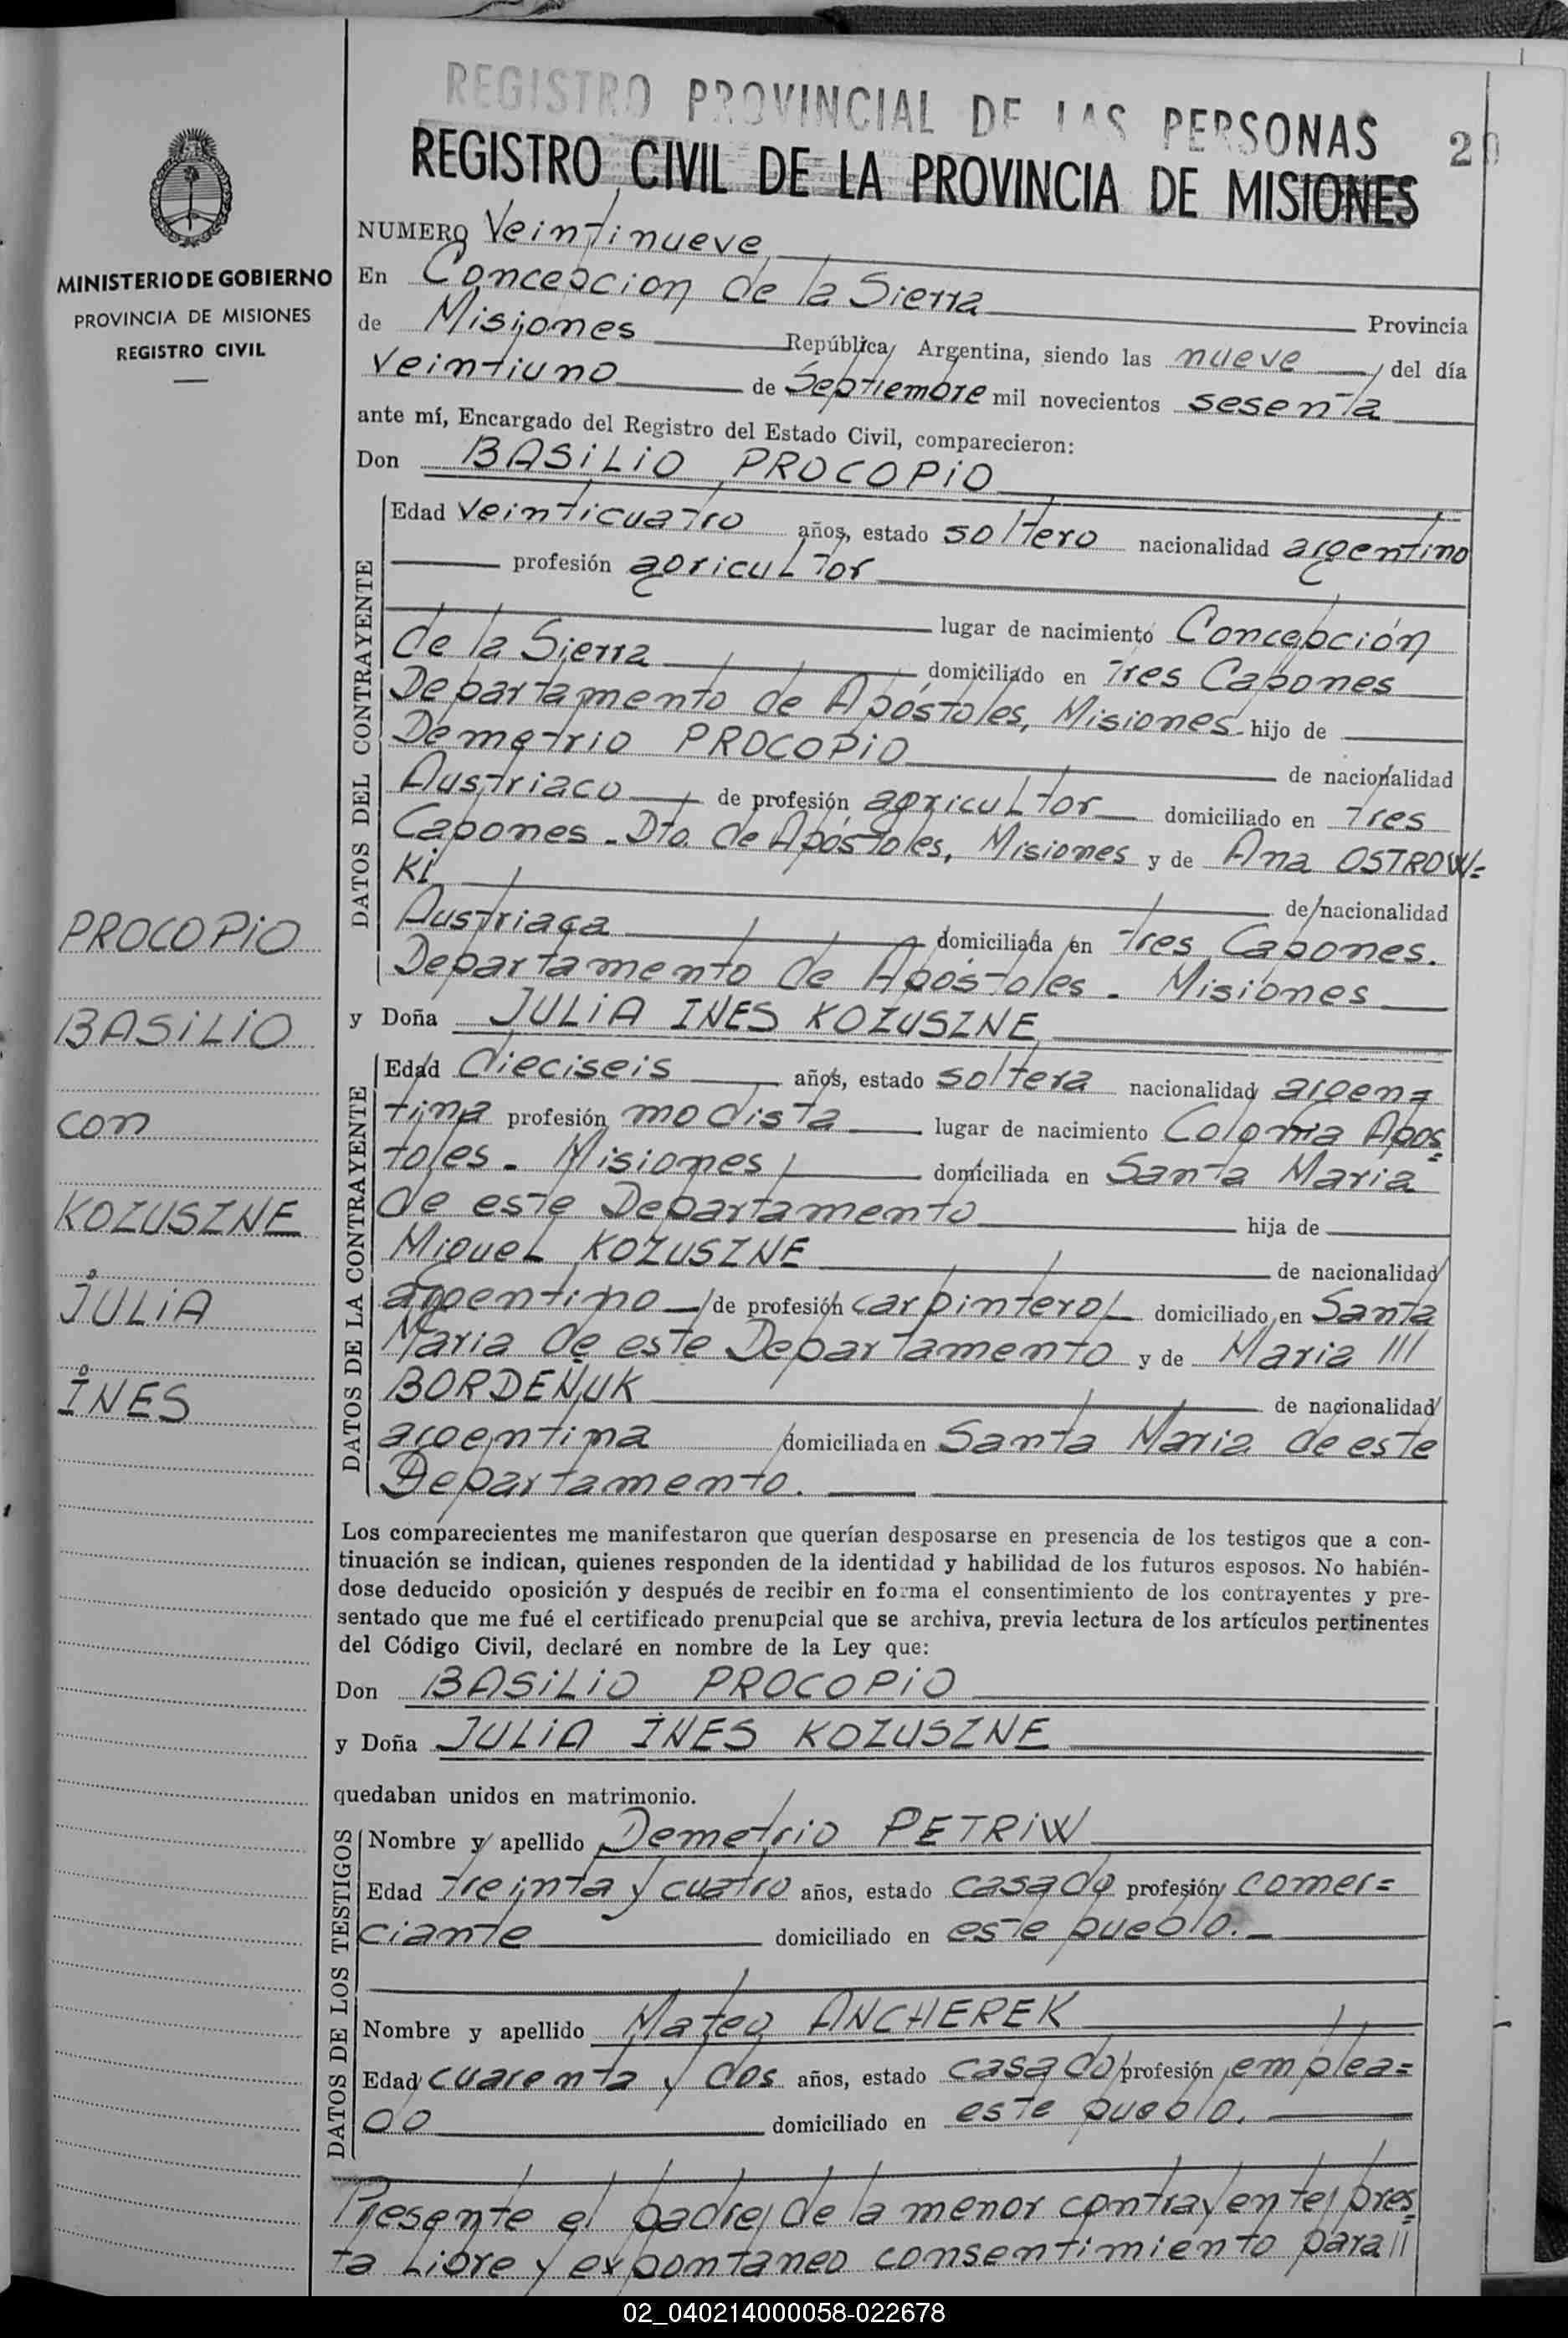 REGISTRO PROVINCIAL DE LAS PERSONAS
REGISTRO CIVIL DE LA PROVINCIA DE MISIONES
MINISTERIO DE GOBIERNO
PROVINCIA DE MISIONES
REGISTRO CIVIL
NUMERO Veintinueve
En Concepcion de la Sierra Provincia
de Misiones República Argentina, siendo las nueve del día
Veintiuno de Septiembre mil novecientos sesenta
ante mí, Encargado del Registro del Estado Civil, comparecieron:
Don BASILIO PROCOPIO
DATOS DEL CONTRAYENTE
Edad veinticuatro años, estado soltero nacionalidad argentino
profesión agricultor
lugar de nacimiento Concepción
de la Sierra domiciliado en Tres Capones
Departamento de Apóstoles, Misiones hijo de
Demetrio PROCOPIO de nacionalidad
Austriaco de profesión agricultor domiciliado en Tres
Capones - Dto. de Apóstoles, Misiones y de Ana OSTROW=
Ki de nacionalidad
Austriaca domiciliada en Tres Capones.
Departamento de Apóstoles - Misiones
y Doña JULIA INES KOZUSZNE
DATOS DE LA CONTRAYENTE
Edad dieciseis años, estado soltera nacionalidad argen=
tina profesión modista lugar de nacimiento Colonia Apos=
toles - Misiones domiciliada en Santa Maria
de este Departamento hija de
Miguel KOZUSZNE de nacionalidad
argentino de profesión carpintero domiciliado en Santa
Maria de este Departamento y de Maria ///
BORDEÑUK de nacionalidad
argentina domiciliada en Santa Maria de este
Departamento.
Los comparecientes me manifestaron que querían desposarse en presencia de los testigos que a con-
tinuación se indican, quienes responden de la identidad y habilidad de los futuros esposos. No habién-
dose deducido oposición y después de recibir en forma el consentimiento de los contrayentes y pre-
sentado que me fué el certificado prenupcial que se archiva, previa lectura de los artículos pertinentes
del Código Civil, declaré en nombre de la Ley que:
Don BASILIO PROCOPIO
y Doña JULIA INES KOZUSZNE
quedaban unidos en matrimonio.
DATOS DE LOS TESTIGOS
Nombre y apellido Demetrio PETRIW
Edad treinta y cuatro años, estado casado profesión comer=
ciante domiciliado en este pueblo.
Nombre y apellido Mateo ANCHEREK
Edad cuarenta y dos años, estado casado profesión emplea=
do domiciliado en este pueblo.
Presente el padre de la menor contrayente, pres=
ta Libre y expontaneo consentimiento para //
PROCOPIO
BASILIO
con
KOZUSZNE
JULIA
INES
02_040214000058-022678